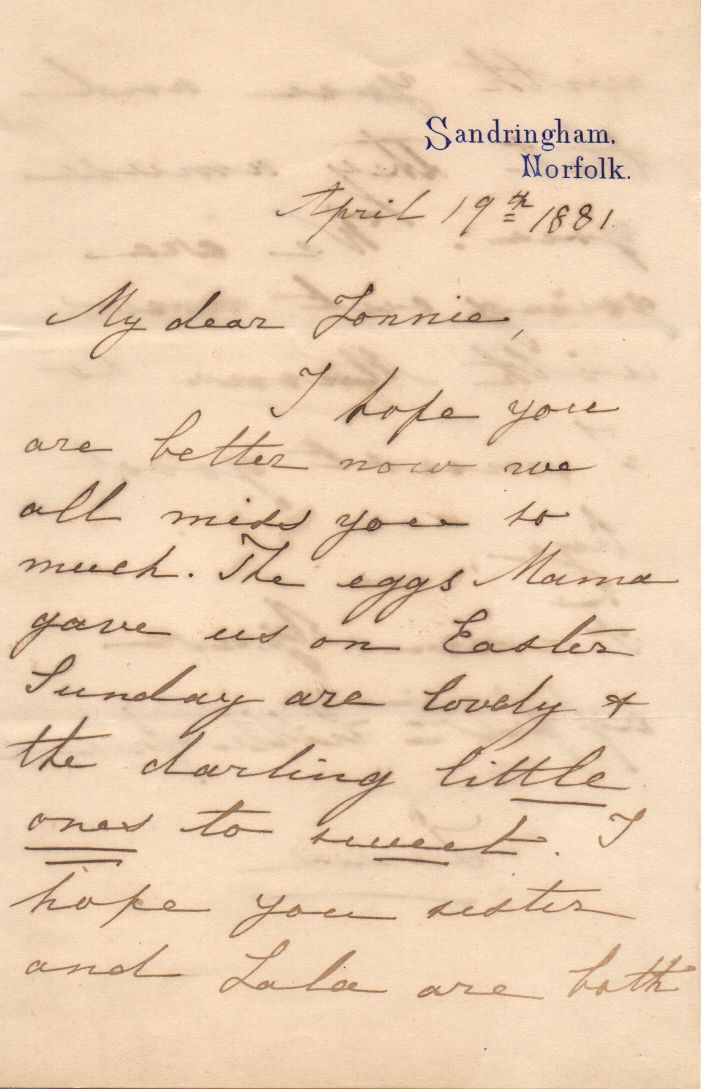 Sandringham,
Norfolk.
April 19th 1881.
My dear Tonnie,
I hope you
are better now we
all miss you so
much. The eggs Mama
gave us on Easter
Sunday are lovely &
the darling little
ones to sweet. I
hope you sister
and Lala are both